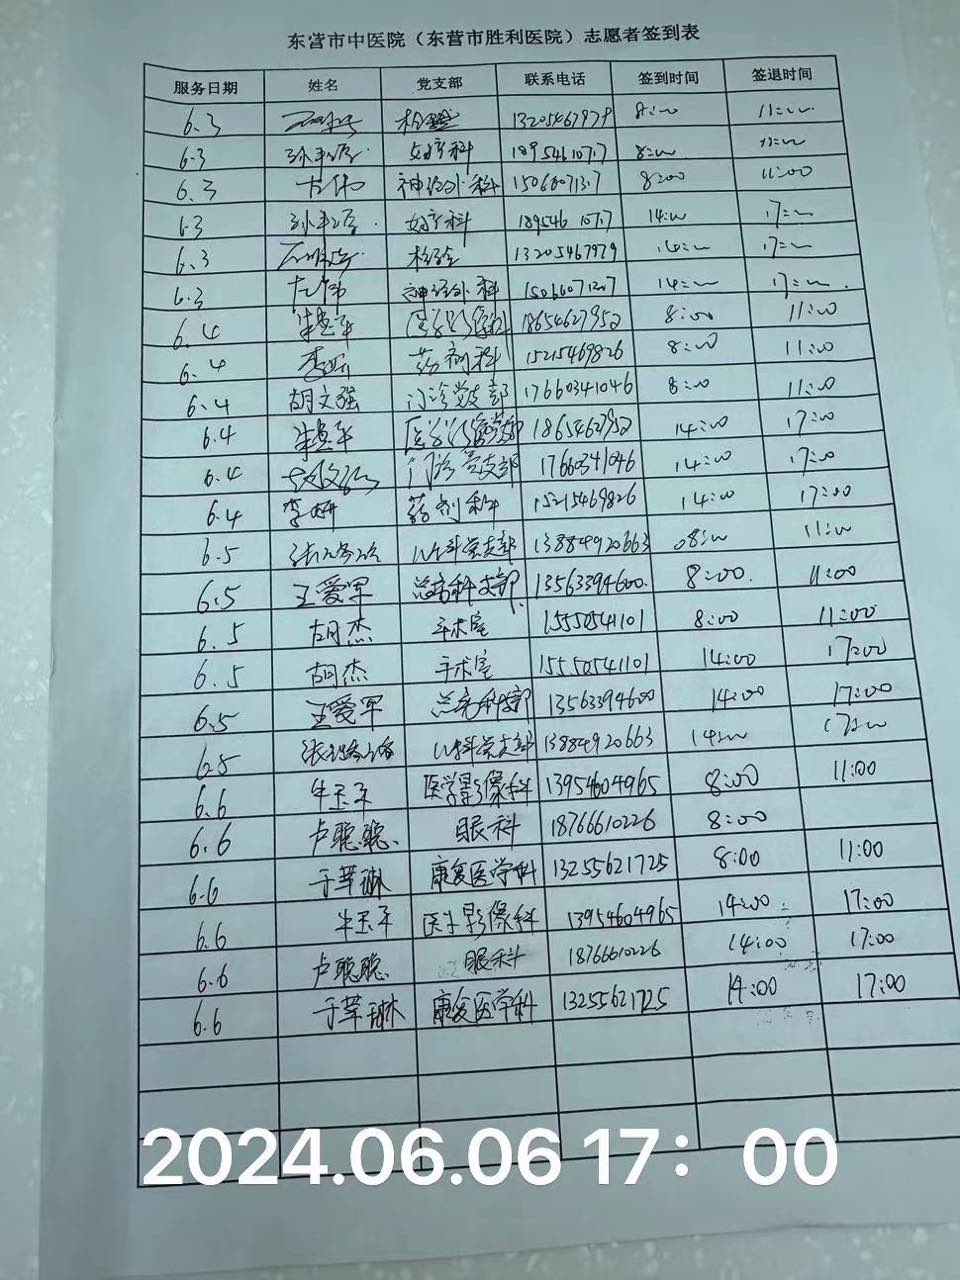 东营市中医院（东营市胜利医院）志愿者签到表
服务日期 姓名 党支部 联系电话 签到时间 签退时间
6.3 检验 13205467979 8:00 11:00
6.3 妇产科 18954610717 8:00 11:00
6.3 神经外科 8:00 11:00
6.3 妇产科 18954610717 14:00 17:00
6.3 检验 13205467979 14:00 17:00
6.3 神经外科 14:00 17:00
6.4 18654627952 8:00 11:00
6.4 李妍 药剂科 15215469826 8:00 11:00
6.4 胡文强 门诊党支部 17660341046 8:00 11:00
6.4 18654627952 14:00 17:00
6.4 门诊党支部 17660341046 14:00 17:00
6.4 李妍 药剂科 15215469826 14:00 17:00
6.5 党支部 13884920663 08:00 11:00
6.5 王爱军 13563394600. 8:00 11:00
6.5 胡杰 手术室 15550541101 8:00 11:00
6.5 胡杰 手术室 15550541101 14:00 17:00
6.5 王爱军 13563394600 14:00 17:00
6.5 党支部 13884920663 14:00 17:00
6.6 牛玉平 医学影像科 13954604965 8:00 11:00
6.6 卢聪聪 眼科 18766610226 8:00
6.6 于苹琳 康复医学科 13255621725 8:00 11:00
6.6 牛玉平 医学影像科 13954604965 14:00 17:00
6.6 卢聪聪 眼科 18766610226 14:00 17:00
6.6 于苹琳 康复医学科 13255621725 14:00 17:00
2024.06.06 17：00